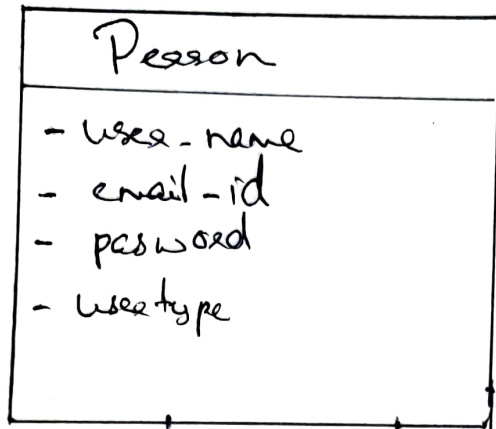 Person
- user-name
- email-id
- pasword
- usertype